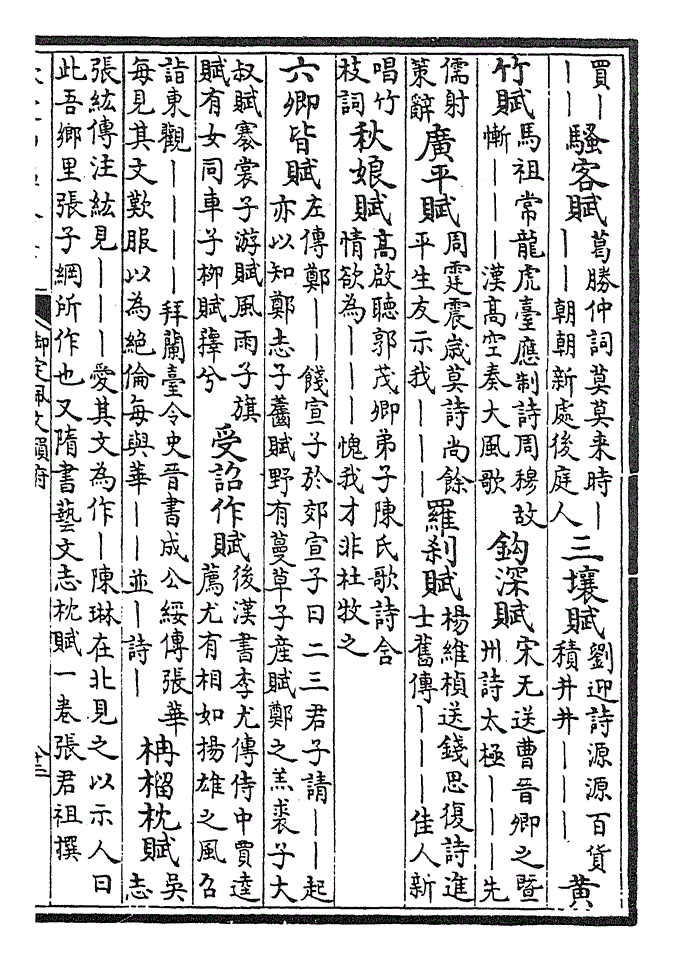 買｜
｜｜
騷客賦
葛勝仲詞莫莫来時｜
｜｜朝朝新處後庭人
三壤賦
劉迎詩源源百貨
積井井｜｜｜
黃
竹賦
馬祖常龍虎臺應制詩周穆故
慚｜｜｜漢高空奏大風歌
鈎深賦
宋无送曹晉卿之暨
州詩太極｜｜｜先
儒射
策辭
廣平賦
周霆震歲莫詩尚餘
平生友示我｜｜｜
羅刹賦
楊維楨送錢思復詩進
士舊傳｜｜｜佳人新
唱竹
枝詞
秋娘賦
高啟聽郭茂卿弟子陳氏歌詩含
情欲為｜｜｜愧我才非杜牧之
六卿皆賦
左傳鄭｜｜餞宣子於郊宣子曰二三君子請｜｜起
亦以知鄭志子齹賦野有蔓草子產賦鄭之羔裘子大
叔賦褰裳子游賦風雨子旗
賦有女同車子柳賦蘀兮
受詔作賦
後漢書李尤傳侍中賈逵
薦尤有相如揚雄之風召
詣東觀｜｜｜｜拜蘭臺令史晉書成公綏傳張華
每見其文歎服以為絕倫每與華｜｜並｜詩｜
柟榴枕賦
吳
志
張紘傳注紘見｜｜｜｜愛其文為作｜陳琳在北見之以示人曰
此吾鄉里張子綱所作也又隋書藝文志枕賦一卷張君祖撰
御定佩文韻府